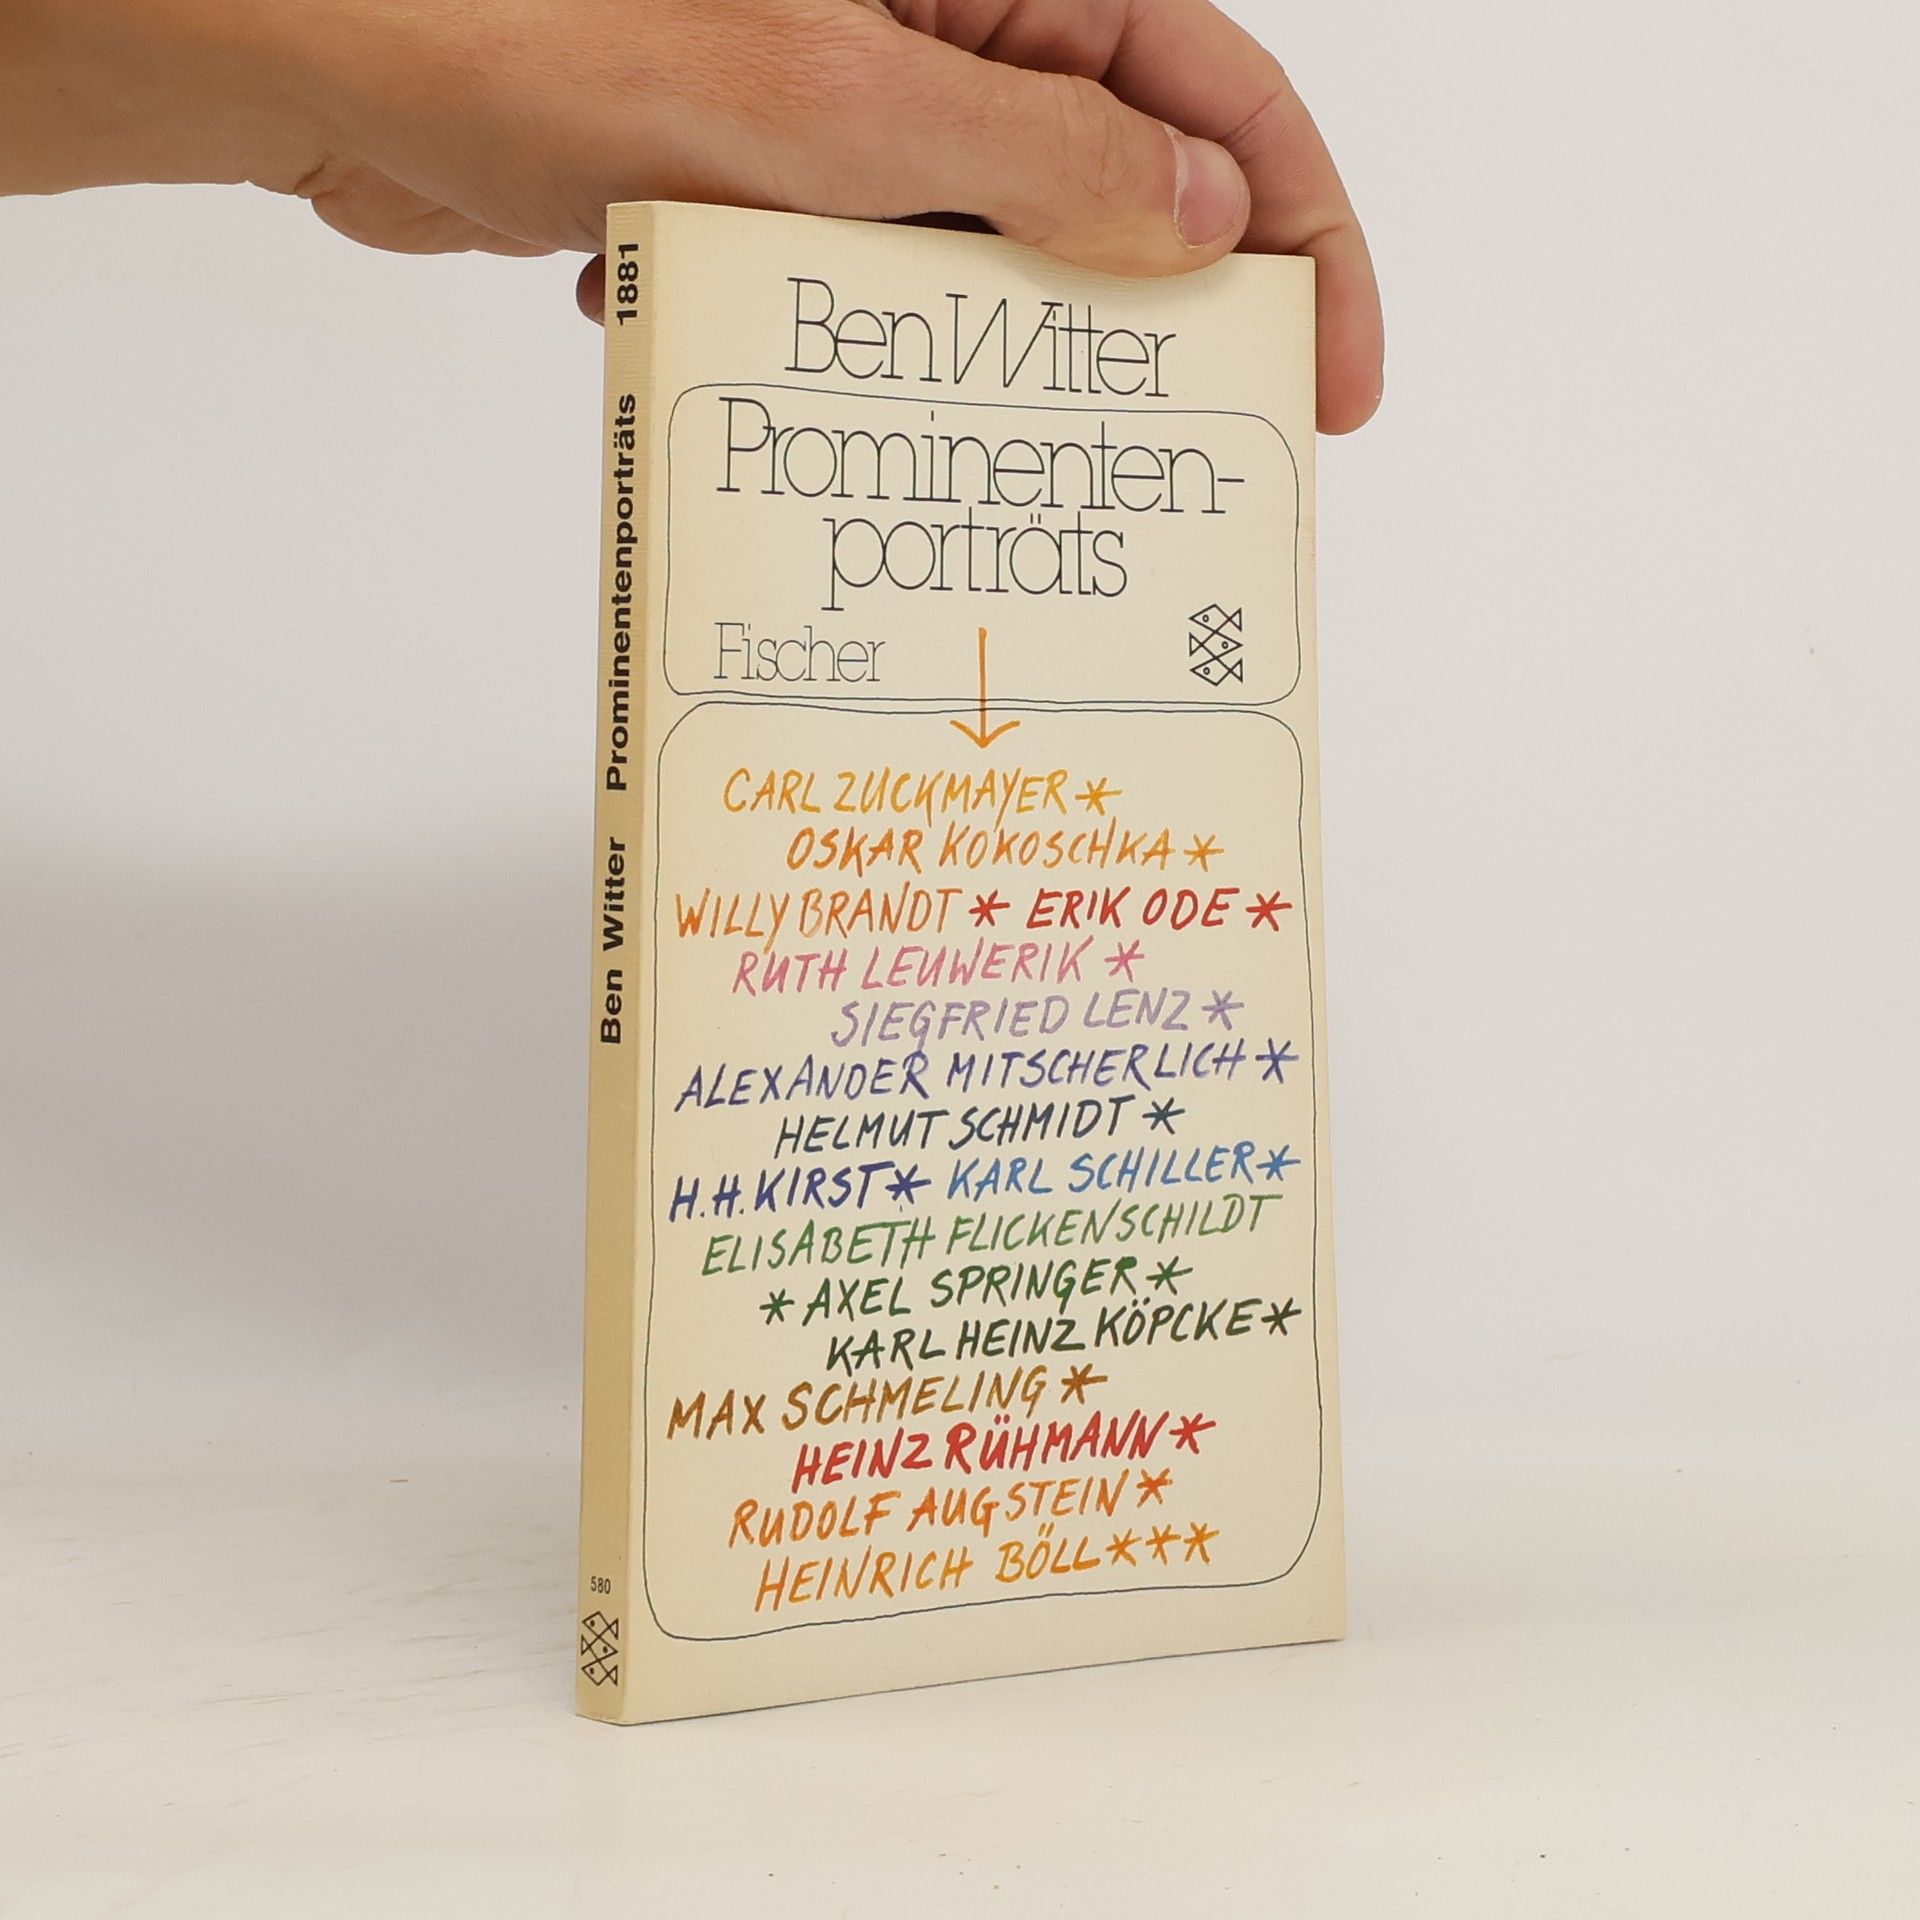 Ben Witter
Prominenten-
porträts
Fischer
CARL ZUCKMAYER *
OSKAR KOKOSCHKA *
WILLY BRANDT * ERIK ODE *
RUTH LEUWERIK *
SIEGFRIED LENZ *
ALEXANDER MITSCHERLICH *
HELMUT SCHMIDT *
H.H. KIRST * KARL SCHILLER *
ELISABETH FLICKENSCHILDT
* AXEL SPRINGER *
KARL HEINZ KÖPCKE *
MAX SCHMELING *
HEINZ RÜHMANN *
RUDOLF AUGSTEIN *
HEINRICH BÖLL ***
Ben Witter Prominentenporträts 1881
580